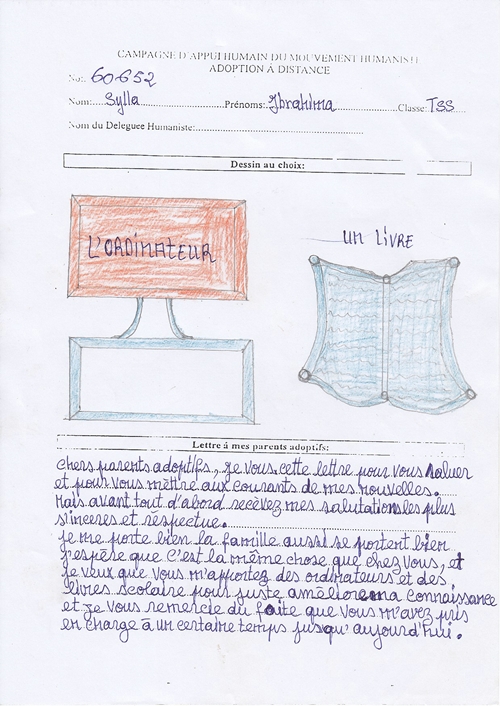 CAMPAGNE D'APPUI HUMAIN DU MOUVEMENT HUMANISTE
ADOPTION À DISTANCE
No: 60652
Nom: Sylla Prénoms: Ibrahima Classe: TSS
Nom du Deleguee Humaniste:
Dessin au choix:
L'ORDINATEUR
UN LIVRE
Lettre á mes parents adoptifs:
chers parents adoptifs, je vous cette lettre pour vous saluer
et pour vous mettre aux courants de mes nouvelles.
Mais avant tout d'abord recevez mes salutations les plus
sinceres et respectue.
je me porte bien la famille aussi se portent bien
j'espère que c'est la même chose que chez vous, et
je veux que vous m'apportez des ordinateurs et des
livres scolaire pour juste améliorer ma connaissance
et je vous remercie du faite que vous m'avez pris
en charge à un certaine temps jusqu'aujourd'hui.